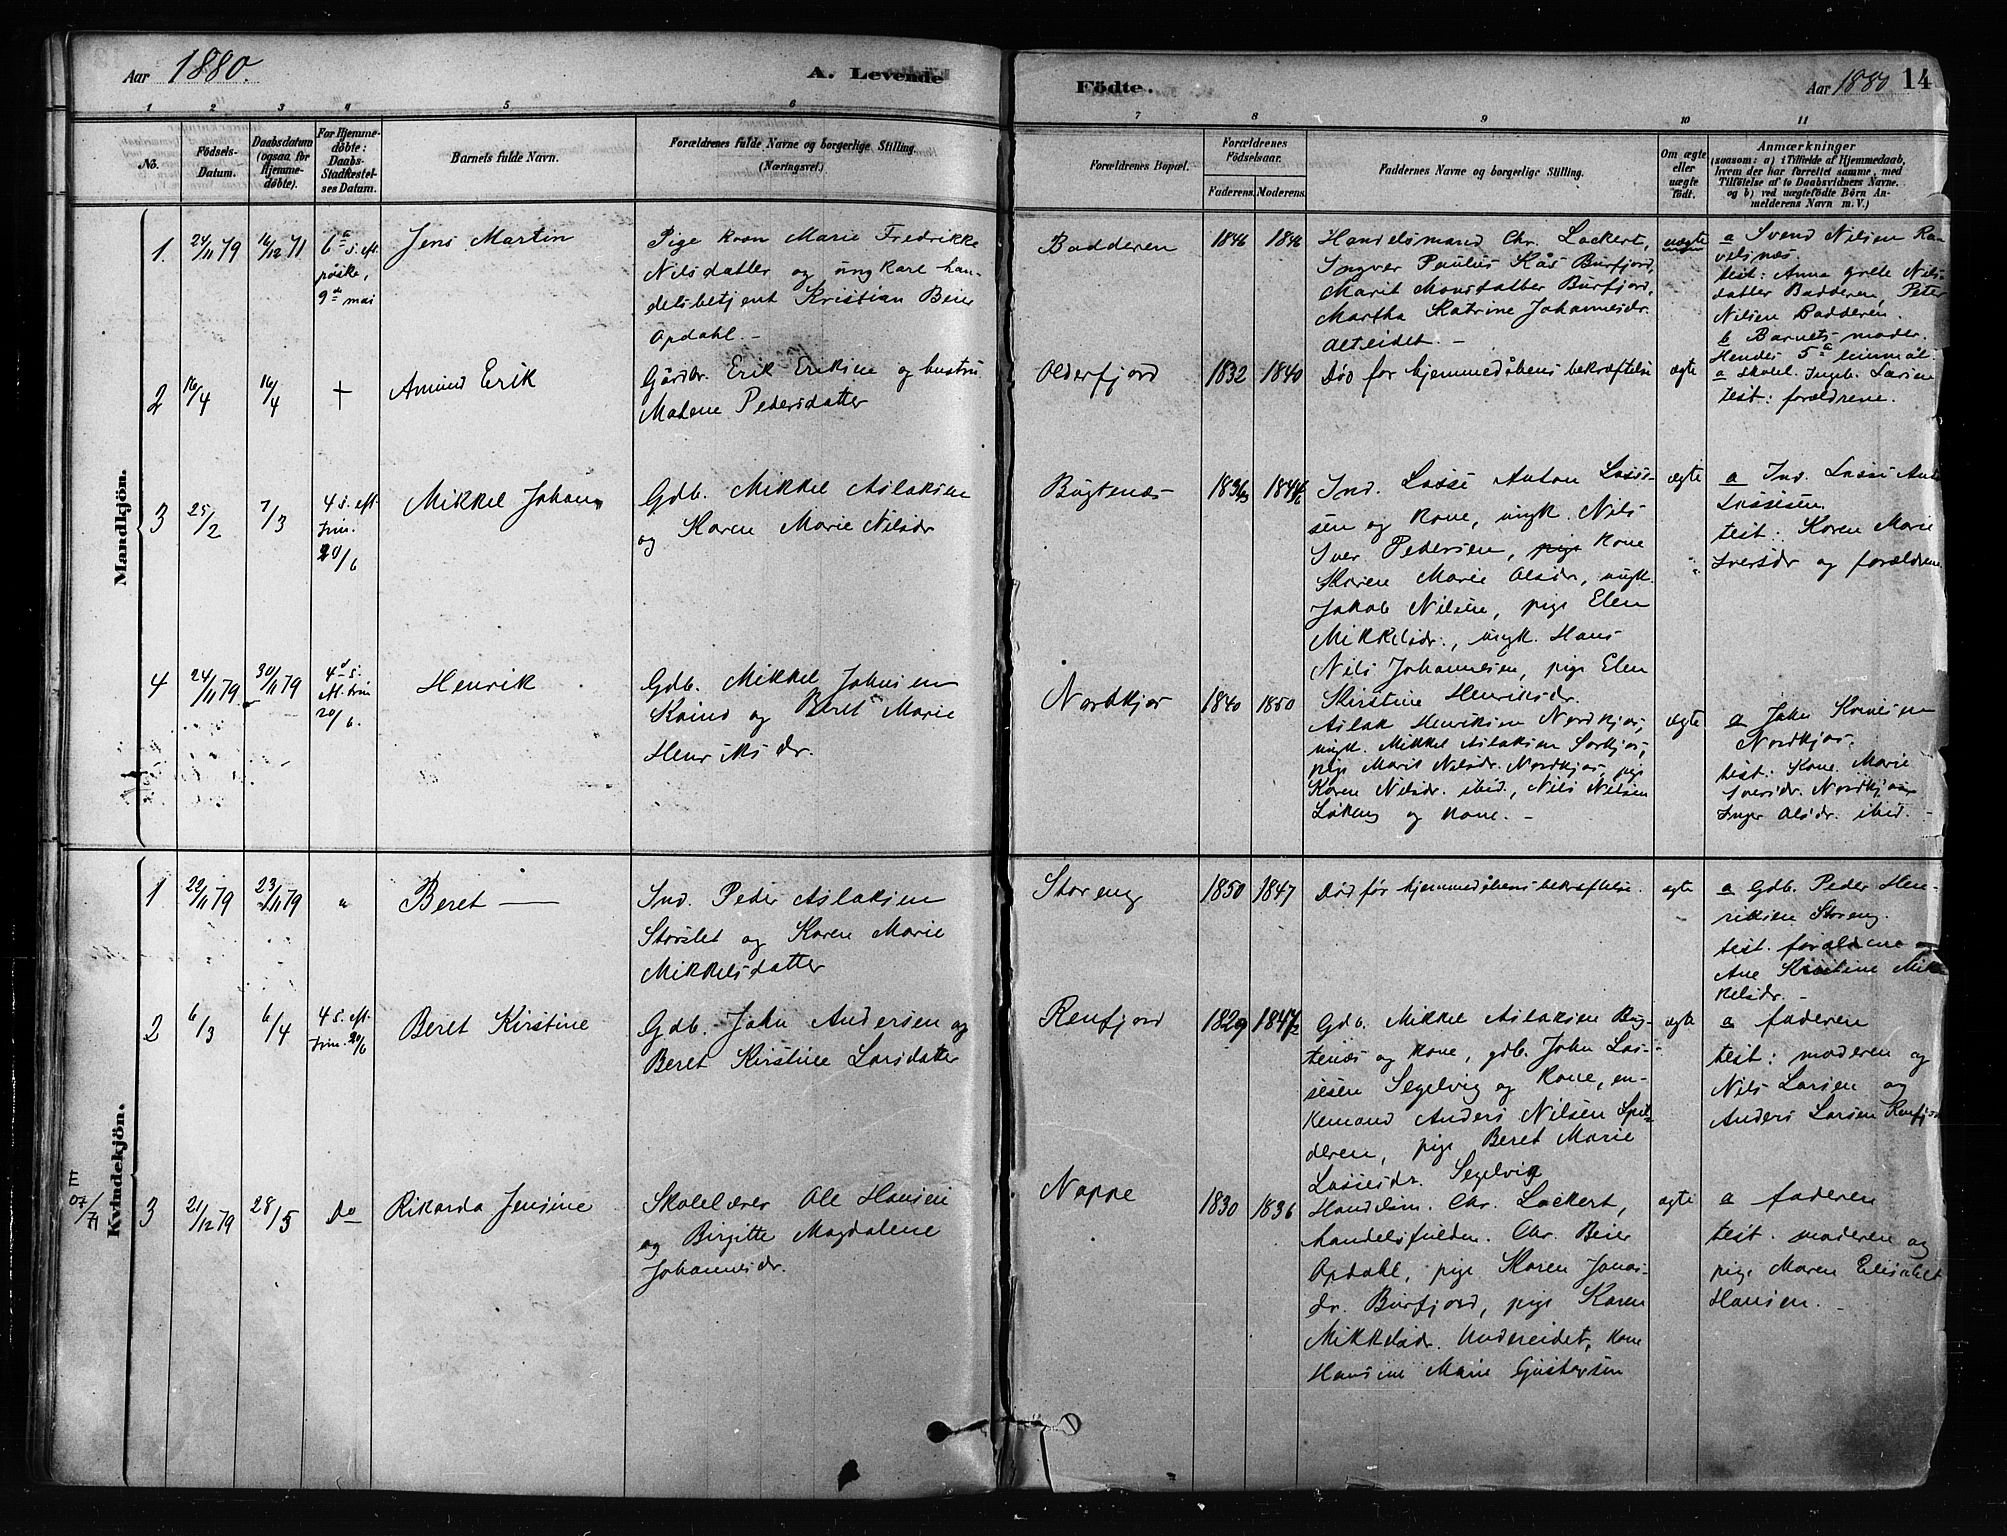 Aar 1880.
A. Levende
Födte.
Aar 1880 14
1 2 3 4 5 6 7 8 9 10 11
No.
Födsels-
Datum.
Daabsdatum
(ogsaa for
Hjemme-
døbte).
For Hjemme-
døbte:
Daabs-
Stadfæstel-
ses Datum.
Barnets fulde Navn.
Forældrenes fulde Navne og borgerlige Stilling
(Næringsvei.)
Forældrenes Bopæl.
Forældrenes
Födselsaar.
Faderens. Moderens.
Faddernes Navne og borgerlige Stilling.
Om ægte
eller
uægte
født.
Anmærkninger
(saasom: a) i Tilfælde af Hjemmedaab,
hvem der har forrettet samme, med
Tilföielse af to Daabsvidners Navne.
og b) ved uægtefödte Börn An-
melderens Navn m. V.)
Mandkjön.
1
24/11 79
16/12
6te s. eft.
påske,
9de mai
Jens Martin
Pige kvæn Marie Fredrikke
Nilsdatter og ungkarl han-
delsbetjent Kristian Beier
Opdahl. -
Badderen
1846 1846
Handelsmand Chr. Lockert,
Ingver Paulus Kås Burfjord,
Marit Monsdatter Burfjord,
Martha Katrine Johannesdr.
Alteidet. -
uægte
a Svend Nilsen Ra-
velsnæs.
test: Anna Grete Nils
datter Badderen, Peter
Nilsen Badderen.
b Barnets moder.
Hendes 5te leiermål.
2
16/4
16/4
+
Amund Erik
Gårdbr. Erik Eriksen og hustru
Malene Pedersdatter
Olderfjord
1832 1840
Død før hjemmedåbens bekræftelse
ægte
a Skolel. Ingeb. Larsen
test: forældrene.
3
25/2
7/3
4 s. eft
trin.
20/6
Mikkel Johan
Gdb. Mikkel Aslaksen
og Karen Marie Nilsdr
Bugtenæs
Ind. Lasse Anton Lass-
sen og kone, ungk. Nils
Iver Pedersen, kone
Karen Marie Olsdr, ungk.
Jakob Nilsen, pige Elen
Mikkelsdr., ungk. Hans
Nils Johannesen, pige Elen
Kirstine Henriksdr.
ægte
a Ind. Lasse Anto
Lassesen.
test: Karen Marie
Iversdr og forældrene
4
24/11 79
30/11 79
4de s.
eft. trin
20/6.
Henrik
Gdb. Mikkel Johnsen
Kvind og Beret Marie
Henriksdr.
Nordkjos
1840 1850
Aslak Henriksen Nordkjos,
ungk. Mikkel Aslaksen Sørkjos,
pige Marit Nilsdr. Nordkjos, pige
Karen Nilsdr. ibid., Nils Nilsen
Løkeng og kone. -
ægte
a John
Nordkjos.
test: Kone Marie
Iversdr. Nordkjos
Inger Olsdr. ibid. -
Kvindekjön.
1
22/11 79
23/11 79
"
Beret
Ind. Peder Aslaksen
Storslet og Karen Marie
Mikkelsdatter
Storeng
1850 1847
Død før hjemmedåbens bekræftelse.
ægte
a Gdb. Peder Hen-
riksen Storeng.
test. forældrene og
Ane Kirstine Mik
kelsdr. -
2
6/3
6/4
4 s. eft.
trin. 20/6
Beret Kirstine
Gdb. John Andersen og
Beret Kirstine Larsdatter
Renfjord
1829
Gdb. Mikkel Aslaksen Bug-
tenæs og kone, gdb. John Las-
sesen Segelvig og kone, en-
kemand Anders Nilsen Spil-
deren, pige Beret Marie
Lassesdr. Segelvik
ægte
a faderen
test: moderen og
Nils Larsen og
Anders Larsen Renfjord
3
21/12 79
28/5
Do
Rikarda Jensine
Skolelærer Ole Hansen
og Birgitte Magdalene
Johannesdr.
Noppe
1830 1836
Handelsm. Chr. Lockert,
handelsfuldm. Chr. Beier
Opdahl, pige Karen Jonas-
dr. Burfjord, pige Karen
Mikkelsdr. Undereidet, kone
Hansine Marie Gustavsen
ægte
a faderen
test. moderen og
pige Maren Elisabet
Hansen. -